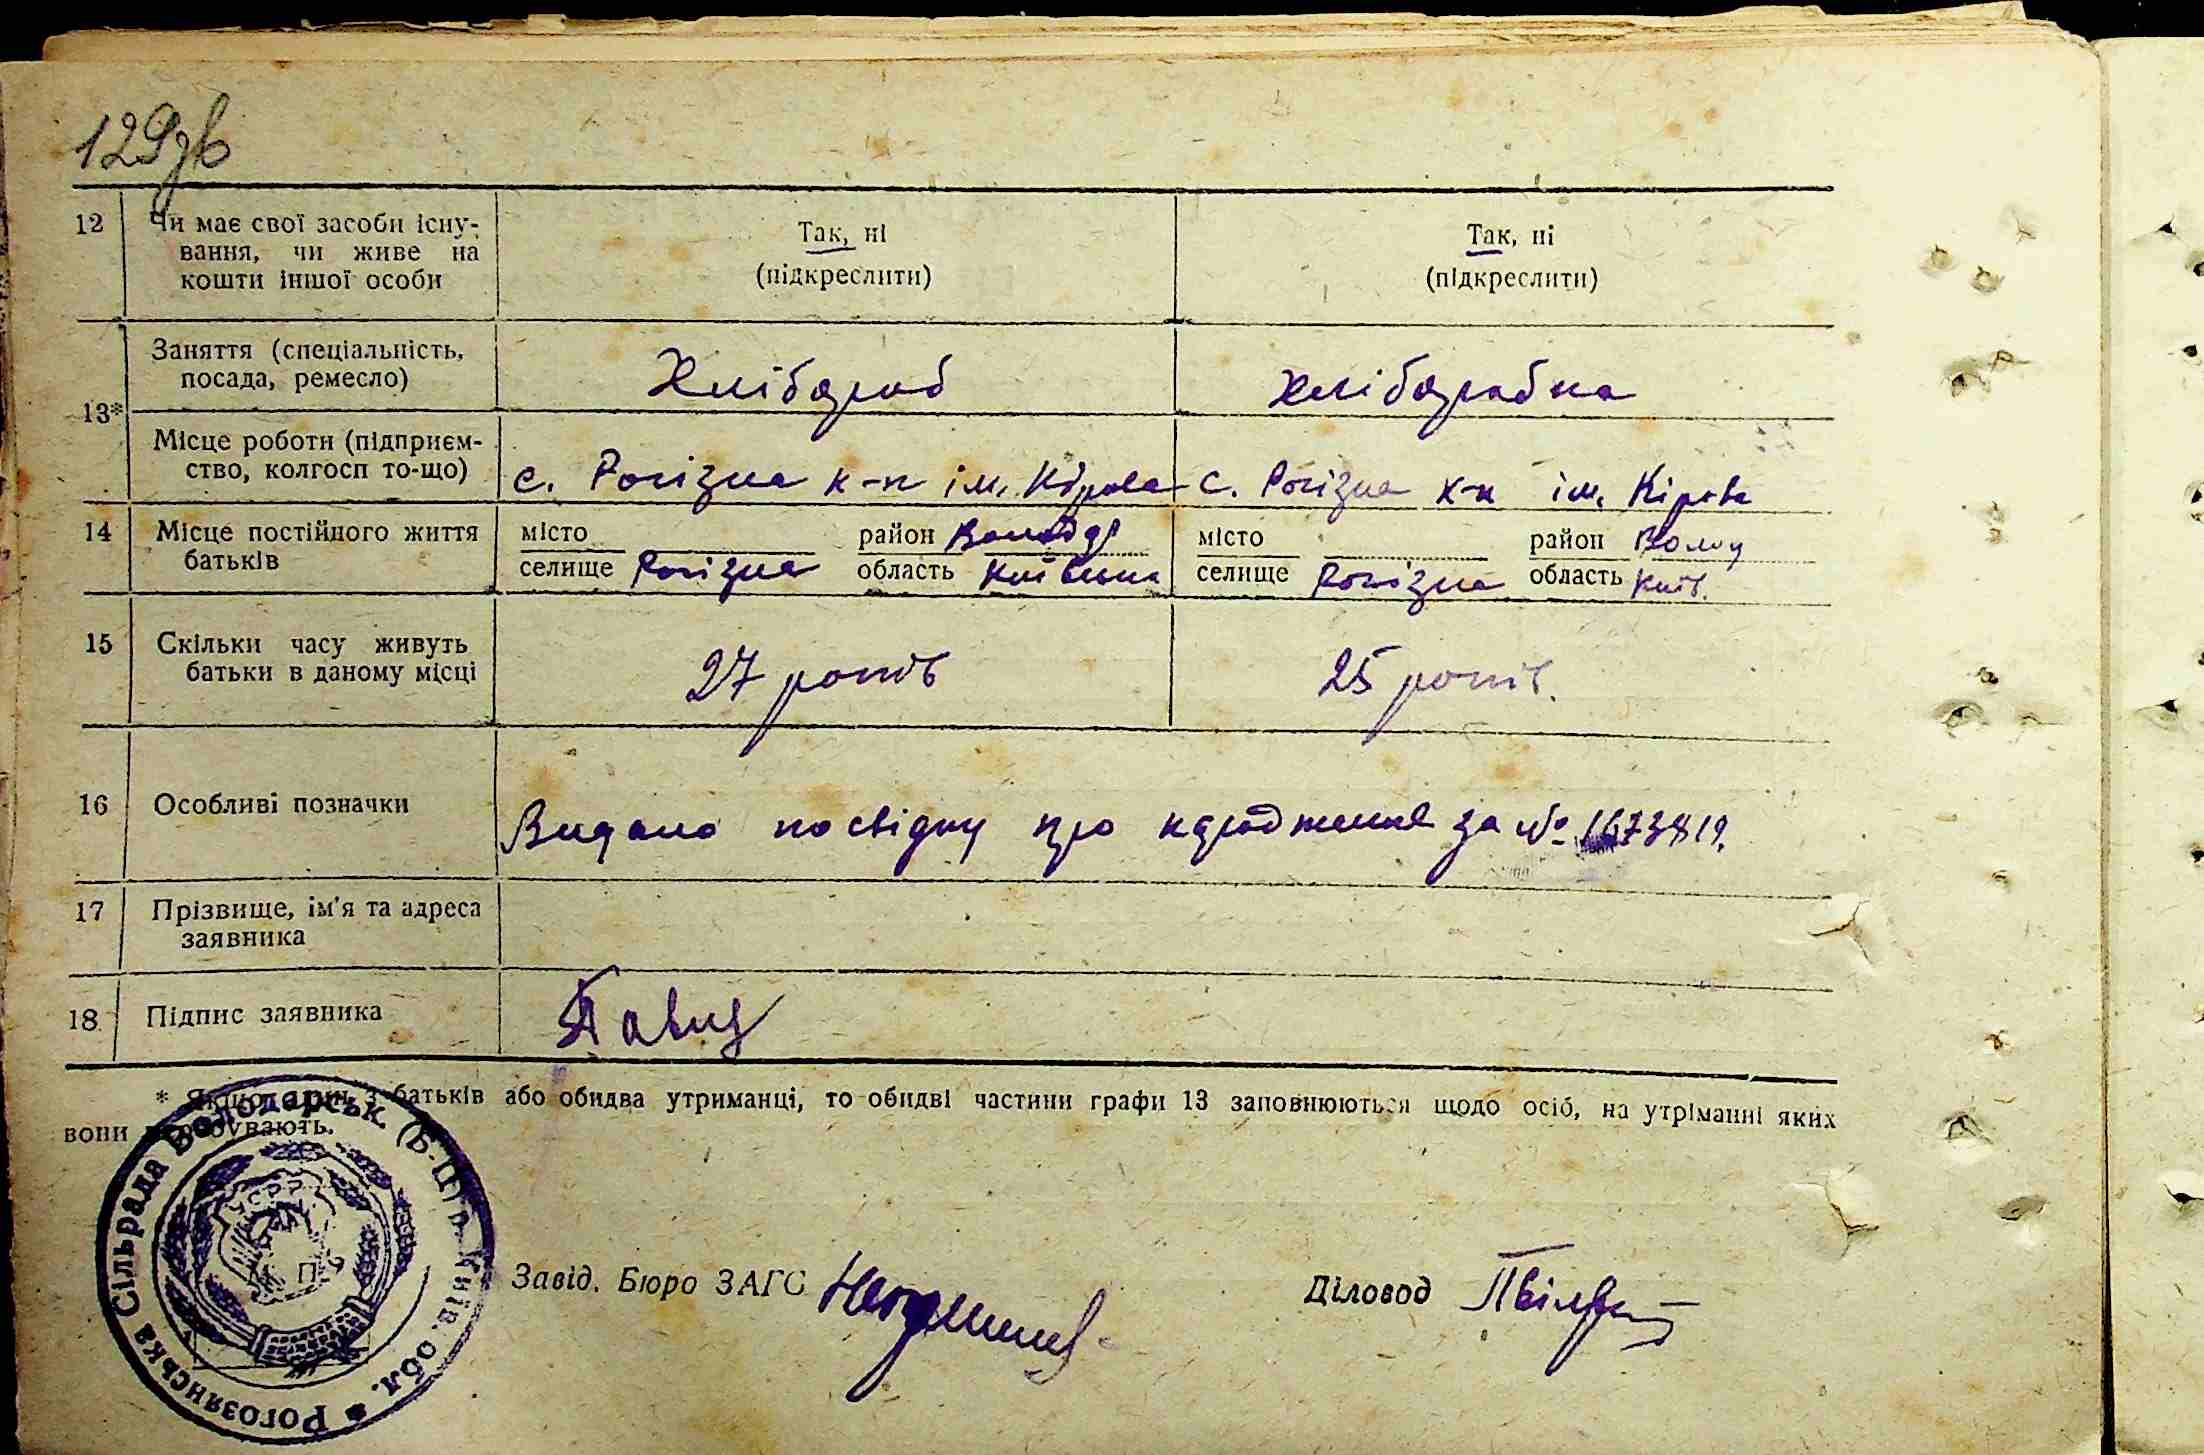 129зв
12 Чи має свої засоби існу-
вання, чи живе на
кошти іншої особи
Так, ні
(підкреслити)
Так, ні
(підкреслити)
13*
Заняття (спеціальність,
посада, ремесло)
Хлібороб
Хліборобка
Місце роботи (підприєм-
ство, колгосп то-що)
с. Рогізна к-п ім. Кірова
с. Рогізна к-п ім. Кірова
14 Місце постійного життя
батьків
місто район Володар
селище Рогізна область Київська
місто район Волод
селище Рогізна область Київ.
15 Скільки часу живуть
батьки в даному місці
27 років
25 років.
16 Особливі позначки
Видано посвідку про народження за № 1673819.
17 Прізвище, ім'я та адреса
заявника
18 Підпис заявника
* Якщо один з батьків або обидва утриманці, то обидві частини графи 13 заповнюються щодо осіб, на утріманні яких
вони перебувають.
Рогозянська Сільрада Володарськ. (Б-Ц) р. Київ. обл.
Завід. Бюро ЗАГС
Діловод